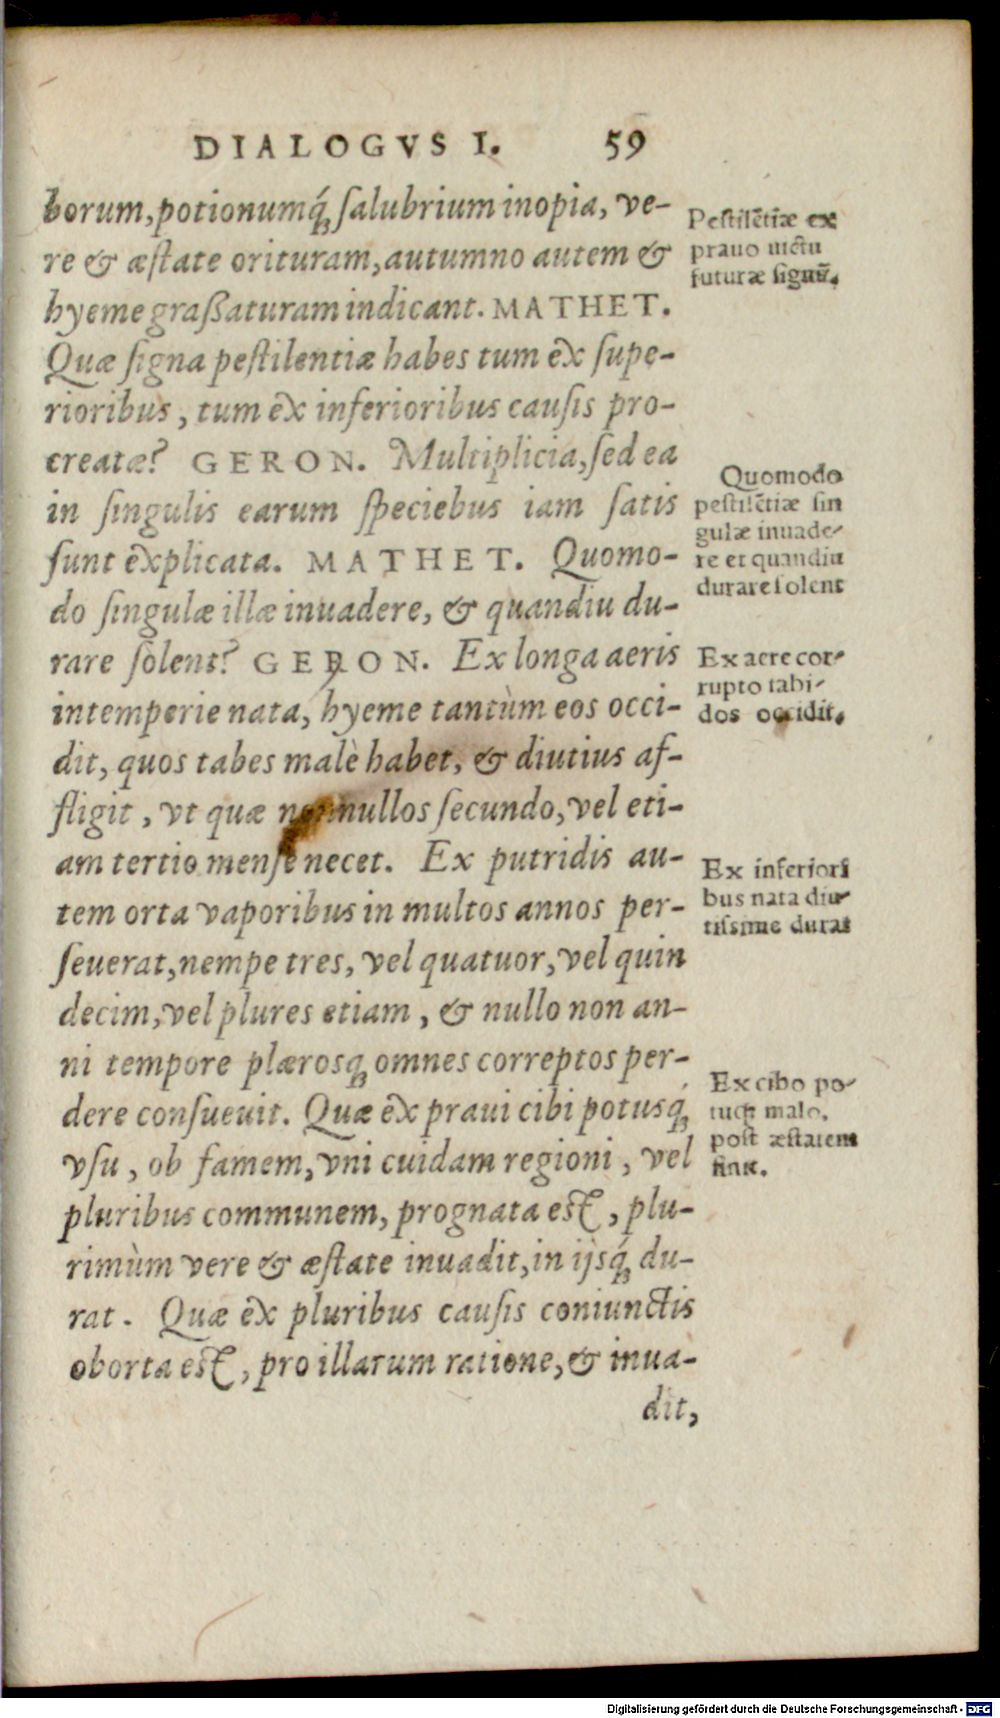 DIALOGVS I. 59
borum, potionumq́ꝫ ſalubrium inopia, ve-
re & æſtate orituram, autumno autem &
hyeme graßaturam indicant. MATHET.
Quæ ſigna peſtilentiæ habes tum ex ſupe-
rioribus, tum ex inferioribus cauſis pro-
creatæ? GERON. Multiplicia, ſed ea
in ſingulis earum ſpeciebus iam ſatis
ſunt explicata. MATHET. Quomo-
do ſingulæ illæ inuadere, & quandiu du-
rare ſolent? GERON. Ex longa aeris
intemperie nata, hyeme tantùm eos occi-
dit, quos tabes malè habet, & diutius af-
fligit, vt quæ nonnullos ſecundo, vel eti-
am tertio menſe necet. Ex putridis au-
tem orta vaporibus in multos annos per-
ſeuerat, nempe tres, vel quatuor, vel quin
decim, vel plures etiam, & nullo non an-
ni tempore plæroſqꝫ omnes correptos per-
dere conſueuit. Quæ ex praui cibi potuſq́ꝫ
vſu, ob famem, vni cuidam regioni, vel
pluribus communem, prognata eſt, plu-
rimùm vere & æſtate inuadit, in ijsq́ꝫ du-
rat. Quæ ex pluribus cauſis coniunctis
oborta eſt, pro illarum ratione, & inua-
dit,
Peſtilẽtiæ ex
prauo uictu
futuræ ſignũ.
Quomodo
peſtilẽtiæ ſin
gulæ inuade-
re et quandiu
durare ſolent
Ex aere cor-
rupto tabi-
dos occidit.
Ex inferiori
bus nata diu-
tiſsime durat
Ex cibo po-
tuqꝫ malo,
poſt æſtatem
finit.
Digitalisierung gefördert durch die Deutsche Forschungsgemeinschaft - DFG